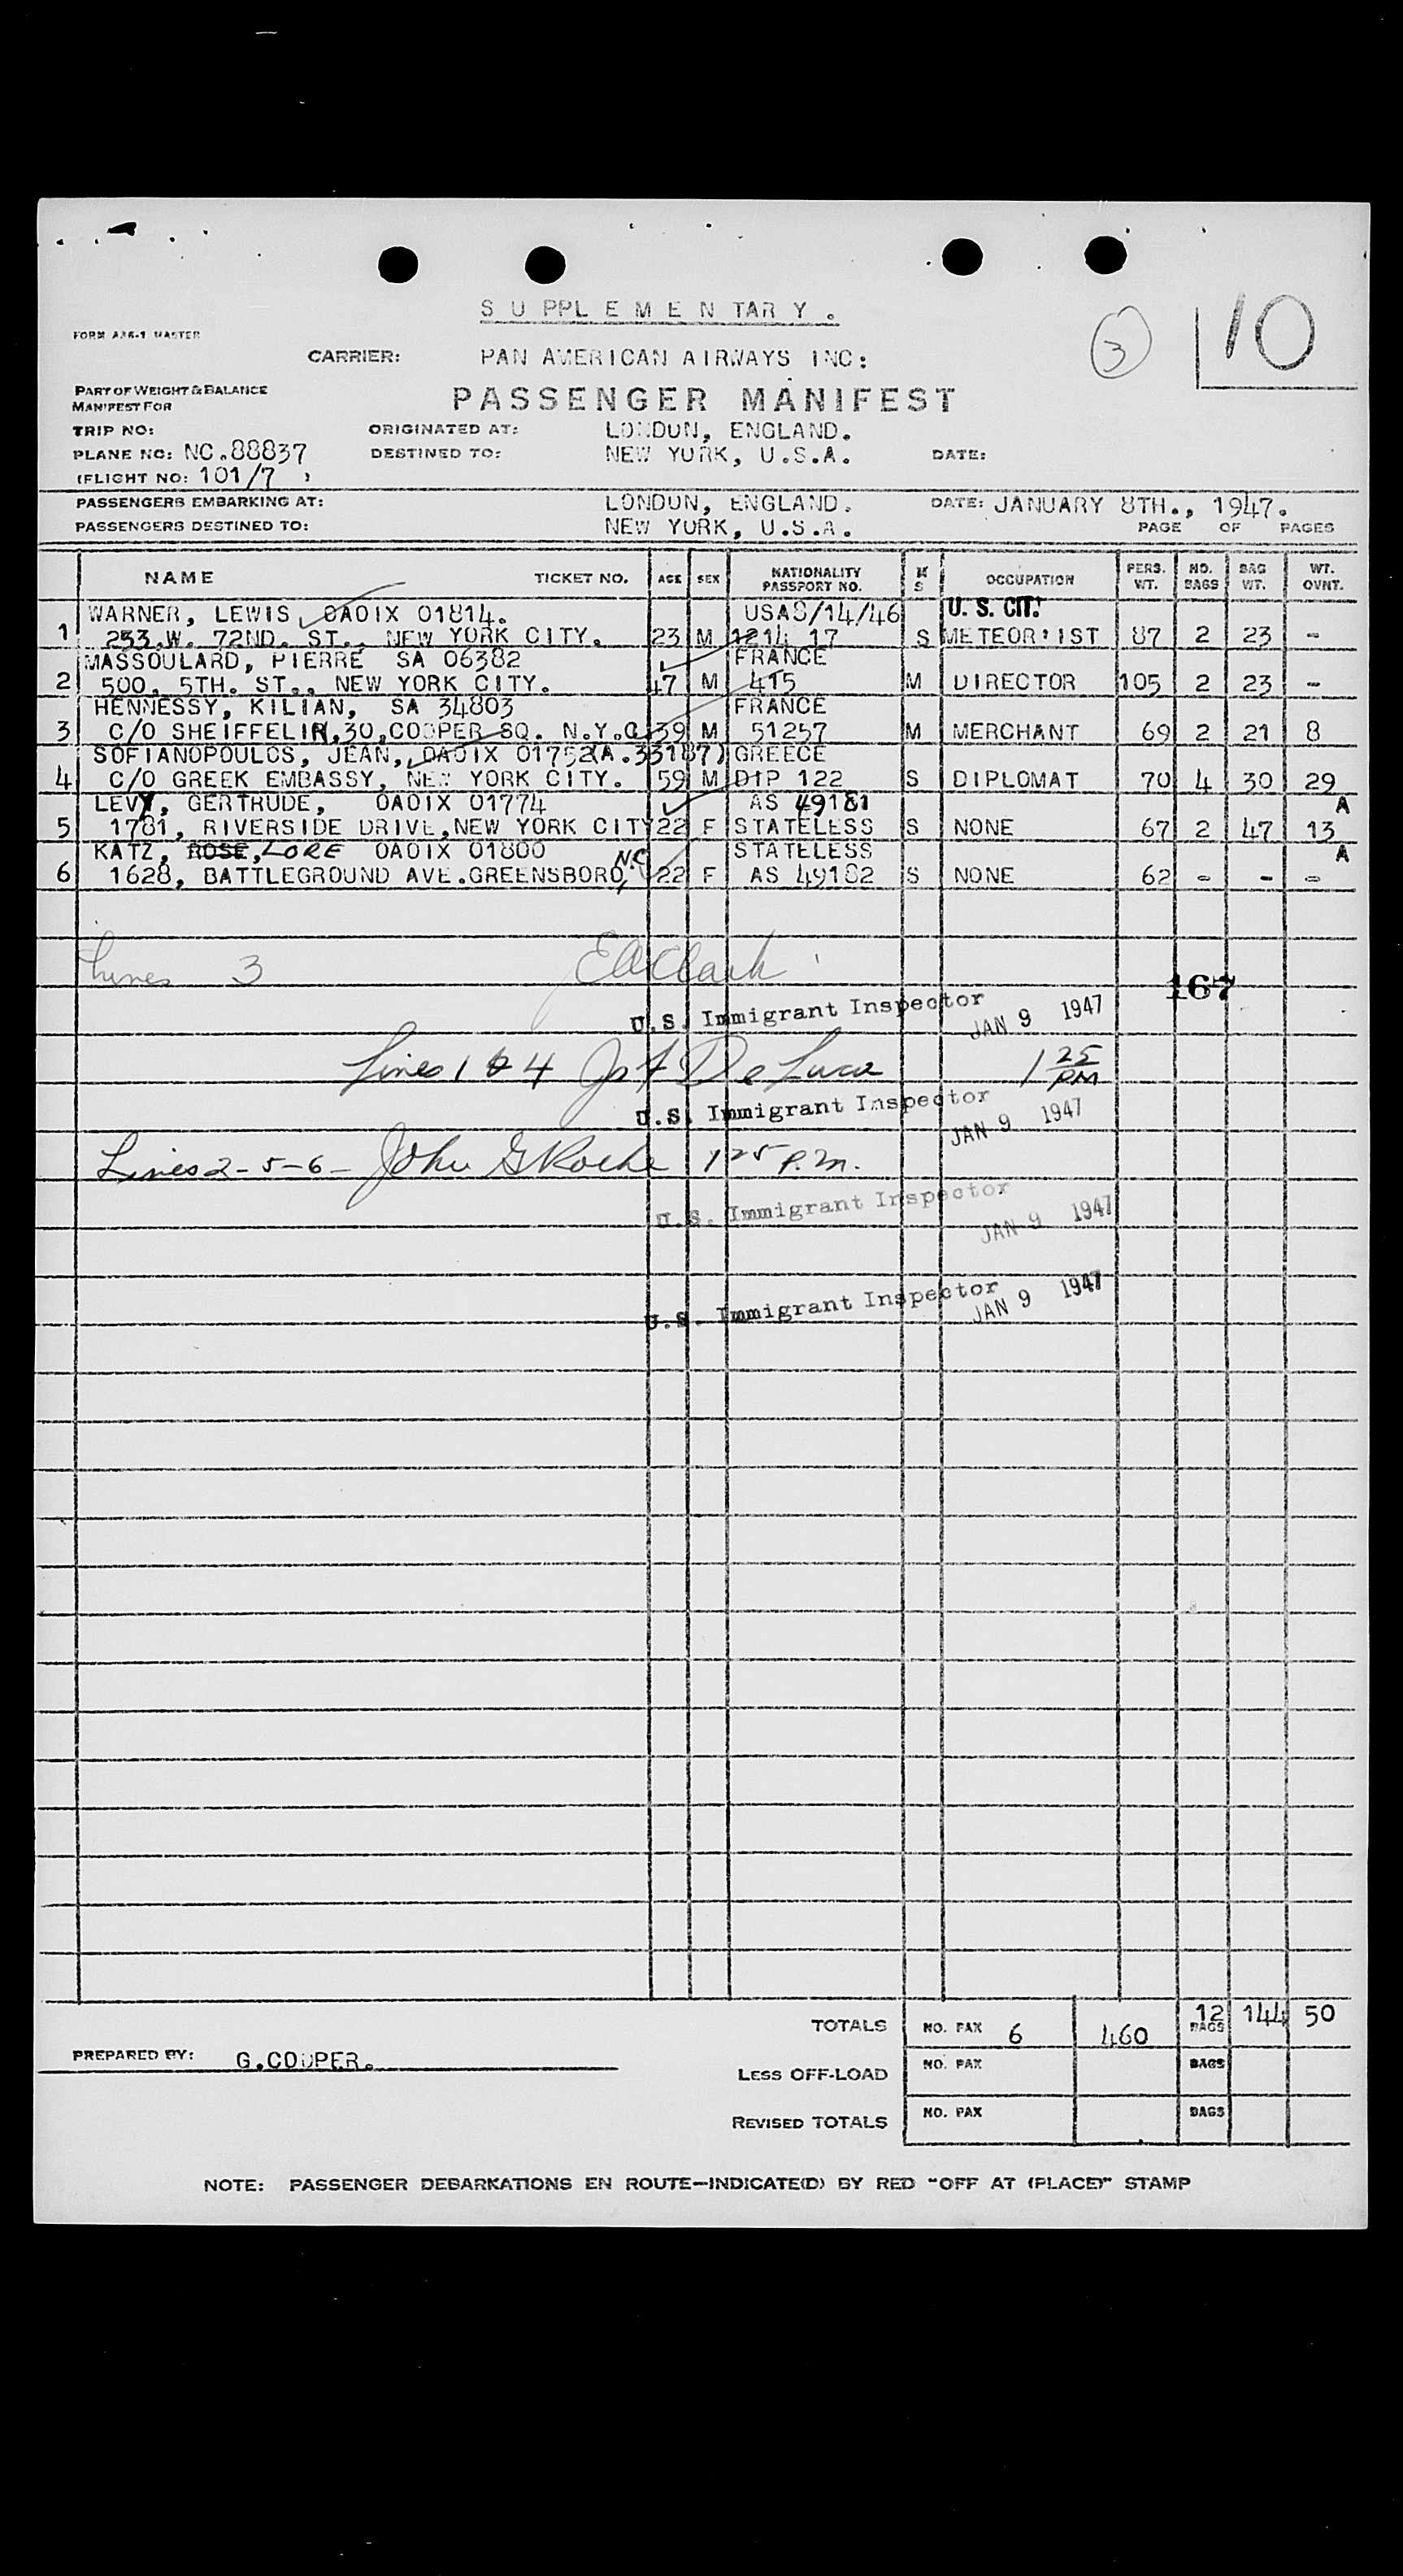 SUPPLEMENTARY.
3
10
FORM A86-1 MASTER
CARRIER: PAN AMERICAN AIRWAYS INC:
PART OF WEIGHT & BALANCE
MANIFEST FOR
PASSENGER MANIFEST
TRIP NO: ORIGINATED AT: LONDON, ENGLAND.
PLANE NO: NC.88837 DESTINED TO: NEW YORK, U.S.A. DATE:
(FLIGHT NO: 101/7 )
PASSENGERS EMBARKING AT: LONDON, ENGLAND. DATE: JANUARY 8TH., 1947.
PASSENGERS DESTINED TO: NEW YORK, U.S.A. PAGE OF PAGES
NAME TICKET NO. AGE SEX NATIONALITY PASSPORT NO. M S OCCUPATION PERS. WT. NO. BAGS BAG WT. WT. OVNT.
WARNER, LEWIS OAOIX 01814. USA8/14/46 U. S. CIT.
1 253.W. 72ND. ST., NEW YORK CITY. 23 M 1214 17 S METEOR'IST 87 2 23 -
MASSOULARD, PIERRE SA 06382 FRANCE
2 500. 5TH. ST., NEW YORK CITY. 47 M 415 M DIRECTOR 105 2 23 -
HENNESSY, KILIAN, SA 34803 FRANCE
3 C/O SHEIFFELIN,30,COOPER SQ. N.Y.C 39 M 51257 M MERCHANT 69 2 21 8
SOFIANOPOULOS, JEAN, OAOIX 01752(A.33187) GREECE
4 C/O GREEK EMBASSY, NEW YORK CITY. 59 M DIP 122 S DIPLOMAT 70 4 30 29
LEVY, GERTRUDE, OAOIX 01774 AS 49181 A
5 1781, RIVERSIDE DRIVE,NEW YORK CITY 22 F STATELESS S NONE 67 2 47 13
KATZ, ROSE, LORE OAOIX 01800 STATELESS A
6 1628, BATTLEGROUND AVE.GREENSBORO, N.C 22 F AS 49182 S NONE 62 - - -
Lines 3 EA Clark
167
U.S. Immigrant Inspector JAN 9 1947
Lines 1 & 4 Jos F De Luca 1 25 PM
U.S. Immigrant Inspector JAN 9 1947
Lines 2-5-6- John G Roche 1 25 P.M.
U.S. Immigrant Inspector JAN 9 1947
U.S. Immigrant Inspector JAN 9 1947
TOTALS NO. PAX 6 460 12 BAGS 144 50
PREPARED BY: G.COOPER.
LESS OFF-LOAD NO. PAX BAGS
REVISED TOTALS NO. PAX BAGS
NOTE: PASSENGER DEBARKATIONS EN ROUTE—INDICATE(D) BY RED "OFF AT (PLACE)" STAMP